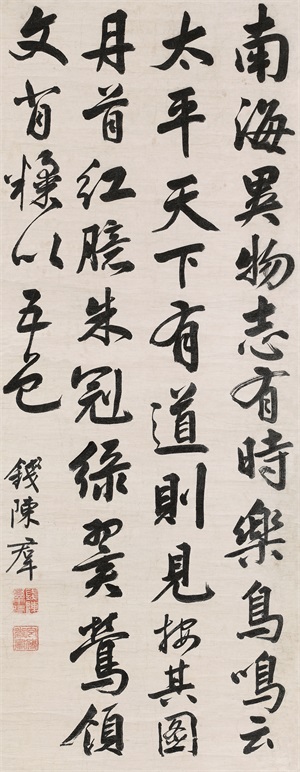 南海異物志有時樂鳥鳴云
太平天下有道則見按其圖
丹首紅臆朱冠綠翼鶯領
文背糅以五色
錢陳羣